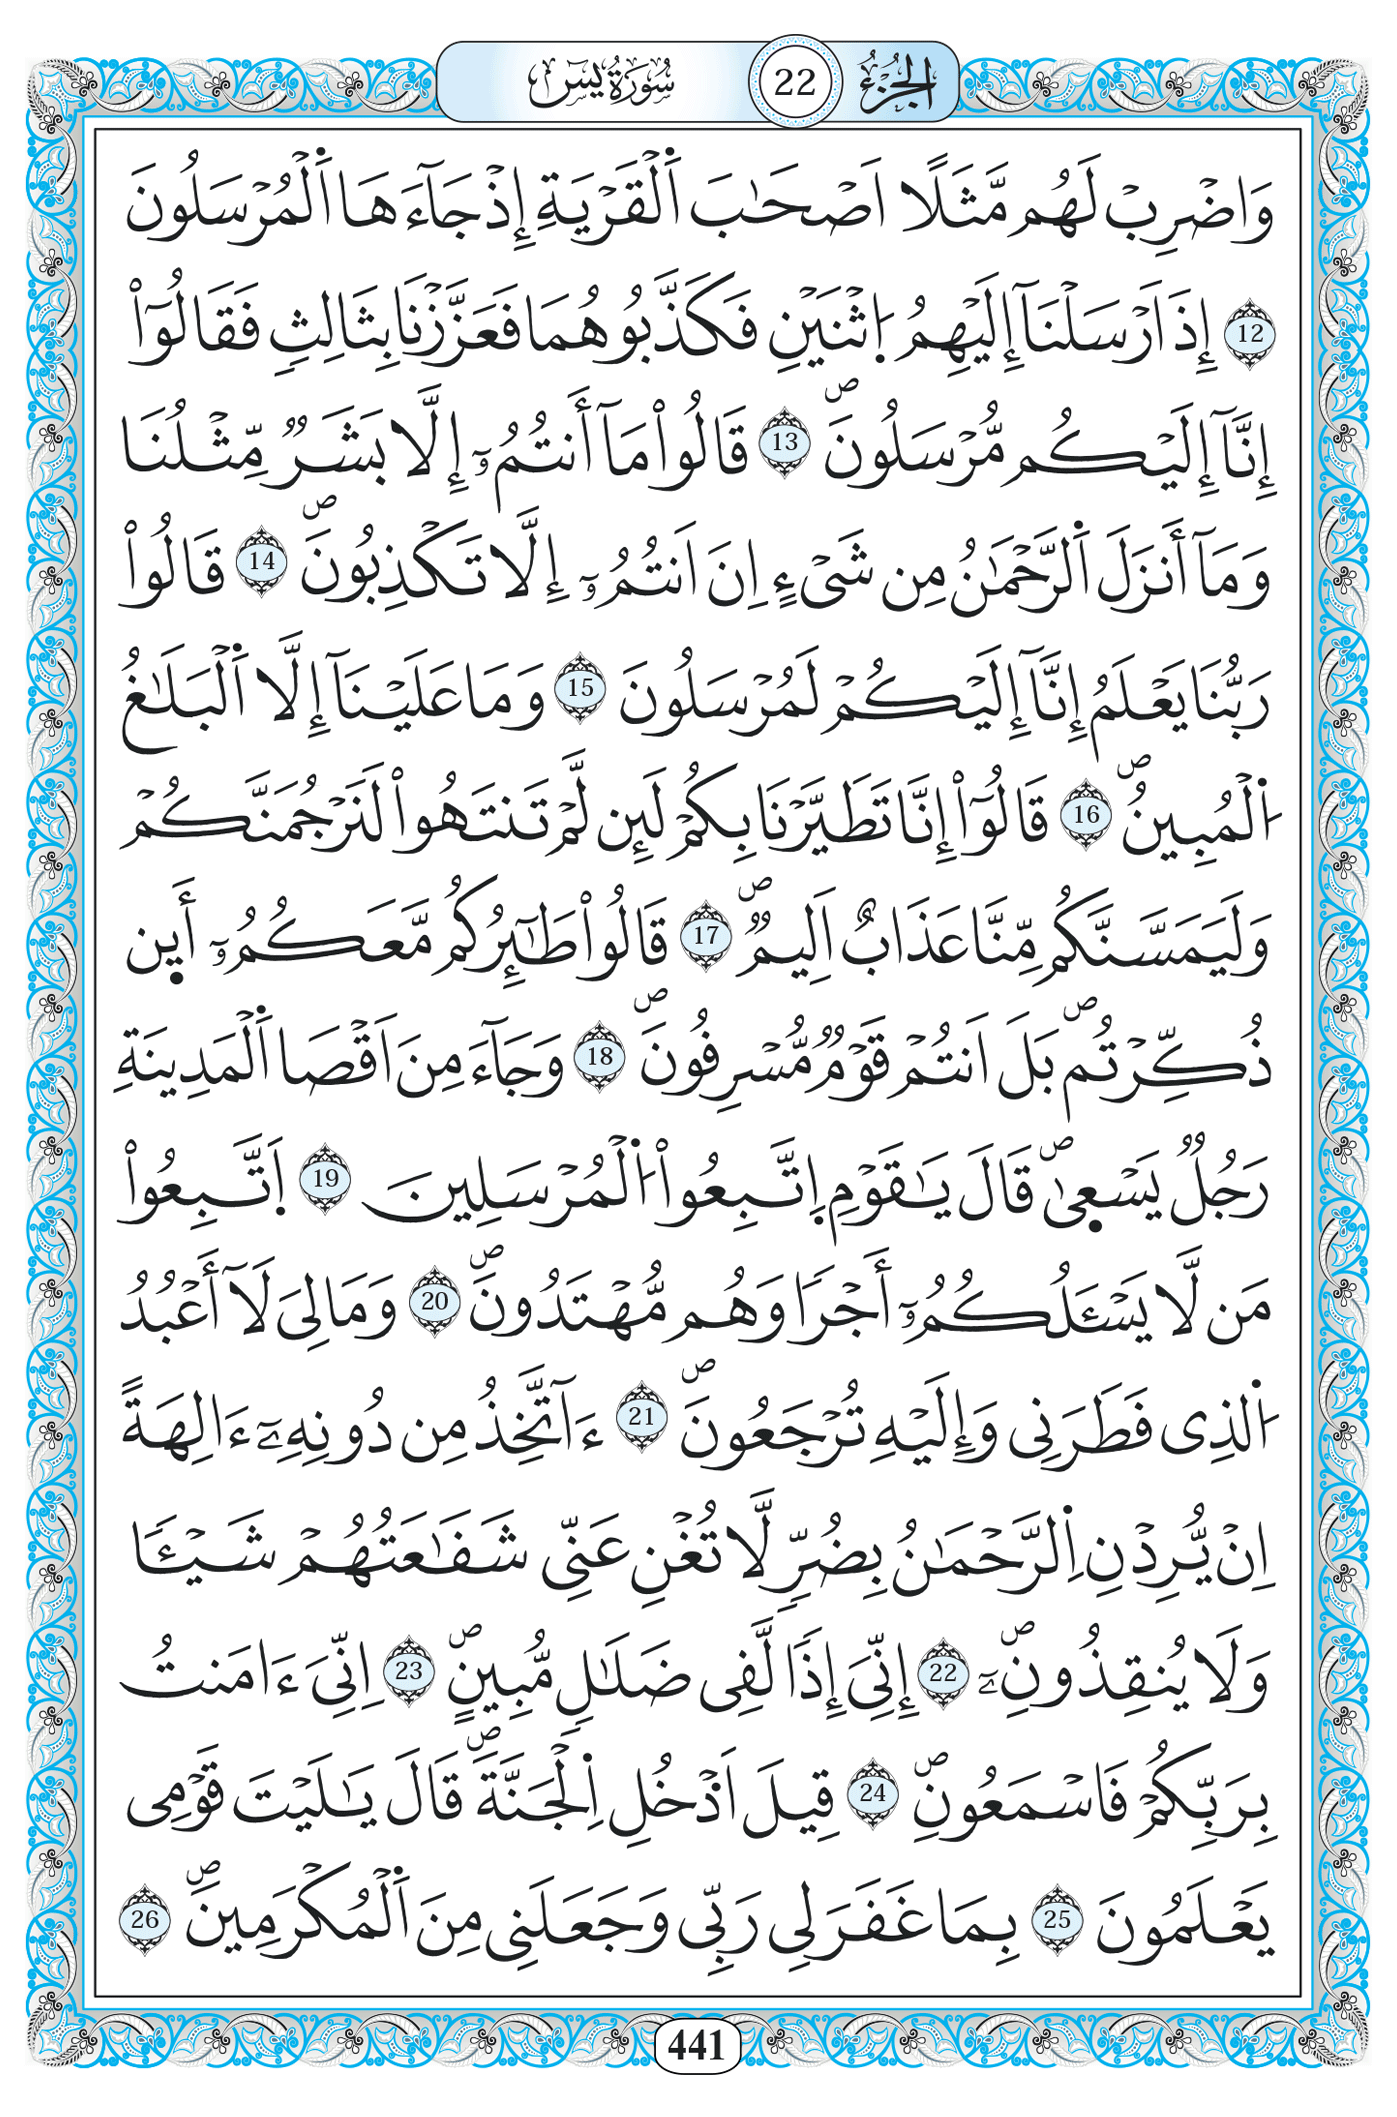 الجزء 22 سورة يس
وَاضْرِبْ لَهُم مَّثَلًا اَصْحَٰبَ اَ۬لْقَرْيَةِ إِذْ جَآءَهَا اَ۬لْمُرْسَلُونَ
12 إِذَ اَرْسَلْنَآ إِلَيْهِمُ اِ۪ثْنَيْنِ فَكَذَّبُوهُمَا فَعَزَّزْنَا بِثَالِثٖ فَقَالُوٓاْ
إِنَّآ إِلَيْكُم مُّرْسَلُونَۖ 13 قَالُواْ مَآ أَنتُمُۥٓ إِلَّا بَشَرٞ مِّثْلُنَا
وَمَآ أَنزَلَ اَ۬لرَّحْمَٰنُ مِن شَےْءٍ اِنَ اَنتُمُۥٓ إِلَّا تَكْذِبُونَۖ 14 قَالُواْ
رَبُّنَا يَعْلَمُ إِنَّآ إِلَيْكُمْ لَمُرْسَلُونَ 15 وَمَا عَلَيْنَآ إِلَّا اَ۬لْبَلَٰغُ
اُ۬لْمُبِينُۖ 16 قَالُوٓاْ إِنَّا تَطَيَّرْنَا بِكُمْ لَئِن لَّمْ تَنتَهُواْ لَنَرْجُمَنَّكُمْ
وَلَيَمَسَّنَّكُم مِّنَّا عَذَابٌ اَلِيمٞۖ 17 قَالُواْ طَٰٓئِرُكُم مَّعَكُمُۥٓ أَي۪ن
ذُكِّرْتُمۖ بَلَ اَنتُمْ قَوْمٞ مُّسْرِفُونَۖ 18 وَجَآءَ مِنَ اَقْصَا اَ۬لْمَدِينَةِ
رَجُلٞ يَسْع۪ىٰۖ قَالَ يَٰقَوْمِ اِ۪تَّبِعُواْ اُ۬لْمُرْسَلِينَ 19 اَ۪تَّبِعُواْ
مَن لَّا يَسْـَٔلُكُمُۥٓ أَجْراٗ وَهُم مُّهْتَدُونَۖ 20 وَمَا لِيَ لَآ أَعْبُدُ
اُ۬لذِى فَطَرَنِى وَإِلَيْهِ تُرْجَعُونَۖ 21 ءَآتَّخِذُ مِن دُونِهِۦٓ ءَالِهَةً
اِنْ يُّرِدْنِ اِ۬لرَّحْمَٰنُ بِضُرّٖ لَّا تُغْنِ عَنِّى شَفَٰعَتُهُمْ شَيْـٔاٗ
وَلَا يُنقِذُونِۦٓۖ 22 إِنِّىَ إِذاٗ لَّفِى ضَلَٰلٖ مُّبِينٍۖ 23 اِنِّىَ ءَامَنتُ
بِرَبِّكُمْ فَاسْمَعُونِۖ 24 قِيلَ اَدْخُلِ اِ۬لْجَنَّةَۖ قَالَ يَٰلَيْتَ قَوْمِى
يَعْلَمُونَ 25 بِمَا غَفَرَ لِى رَبِّى وَجَعَلَنِى مِنَ اَ۬لْمُكْرَمِينَۖ 26
441